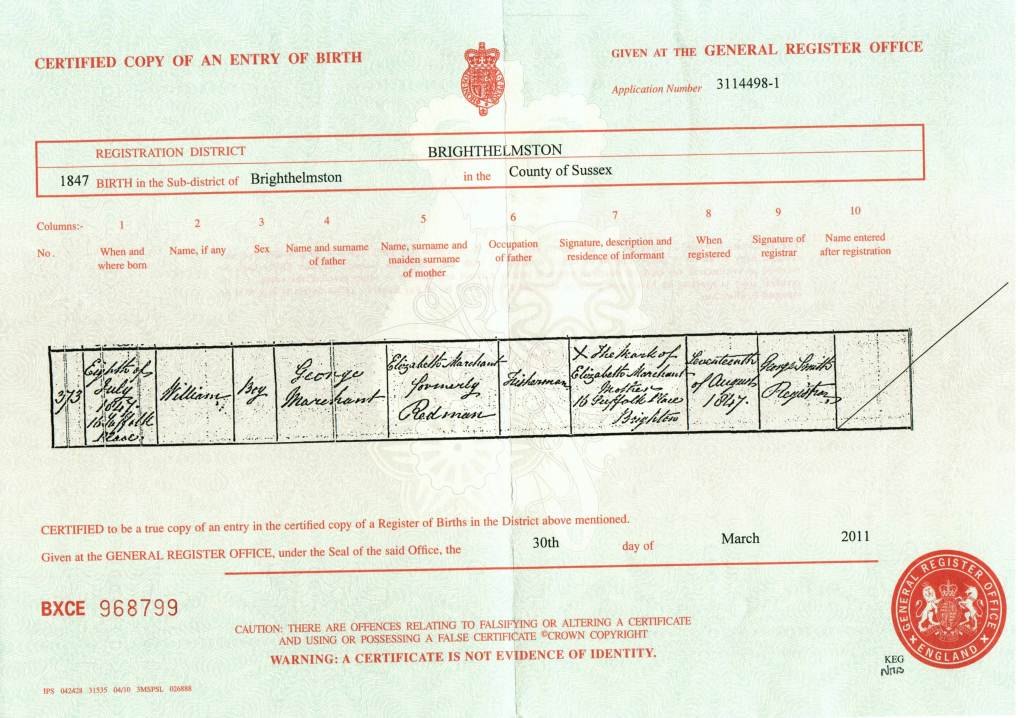 CERTIFIED COPY OF AN ENTRY OF BIRTH
GIVEN AT THE GENERAL REGISTER OFFICE
Application Number 3114498-1
REGISTRATION DISTRICT BRIGHTHELMSTON
1847 BIRTH in the Sub-district of Brighthelmston in the County of Sussex
Columns:- 1 2 3 4 5 6 7 8 9 10
No. When and where born Name, if any Sex Name and surname of father Name, surname and maiden surname of mother Occupation of father Signature, description and residence of informant When registered Signature of registrar Name entered after registration
373
Eighth of
July
1847
16 Suffolk
Place
William
Boy
George
Marchant
Elizabeth Marchant
formerly
Redman
Fisherman
X The Mark of
Elizabeth Marchant
Mother
16 Suffolk Place
Brighton
Seventeenth
of August
1847.
George Smith
Registrar
CERTIFIED to be a true copy of an entry in the certified copy of a Register of Births in the District above mentioned.
Given at the GENERAL REGISTER OFFICE, under the Seal of the said Office, the 30th day of March 2011
BXCE 968799
CAUTION: THERE ARE OFFENCES RELATING TO FALSIFYING OR ALTERING A CERTIFICATE
AND USING OR POSSESSING A FALSE CERTIFICATE ©CROWN COPYRIGHT
WARNING: A CERTIFICATE IS NOT EVIDENCE OF IDENTITY.
GENERAL REGISTER OFFICE
ENGLAND
KEG
IPS 042428 31535 04/10 3MSPSL 026888